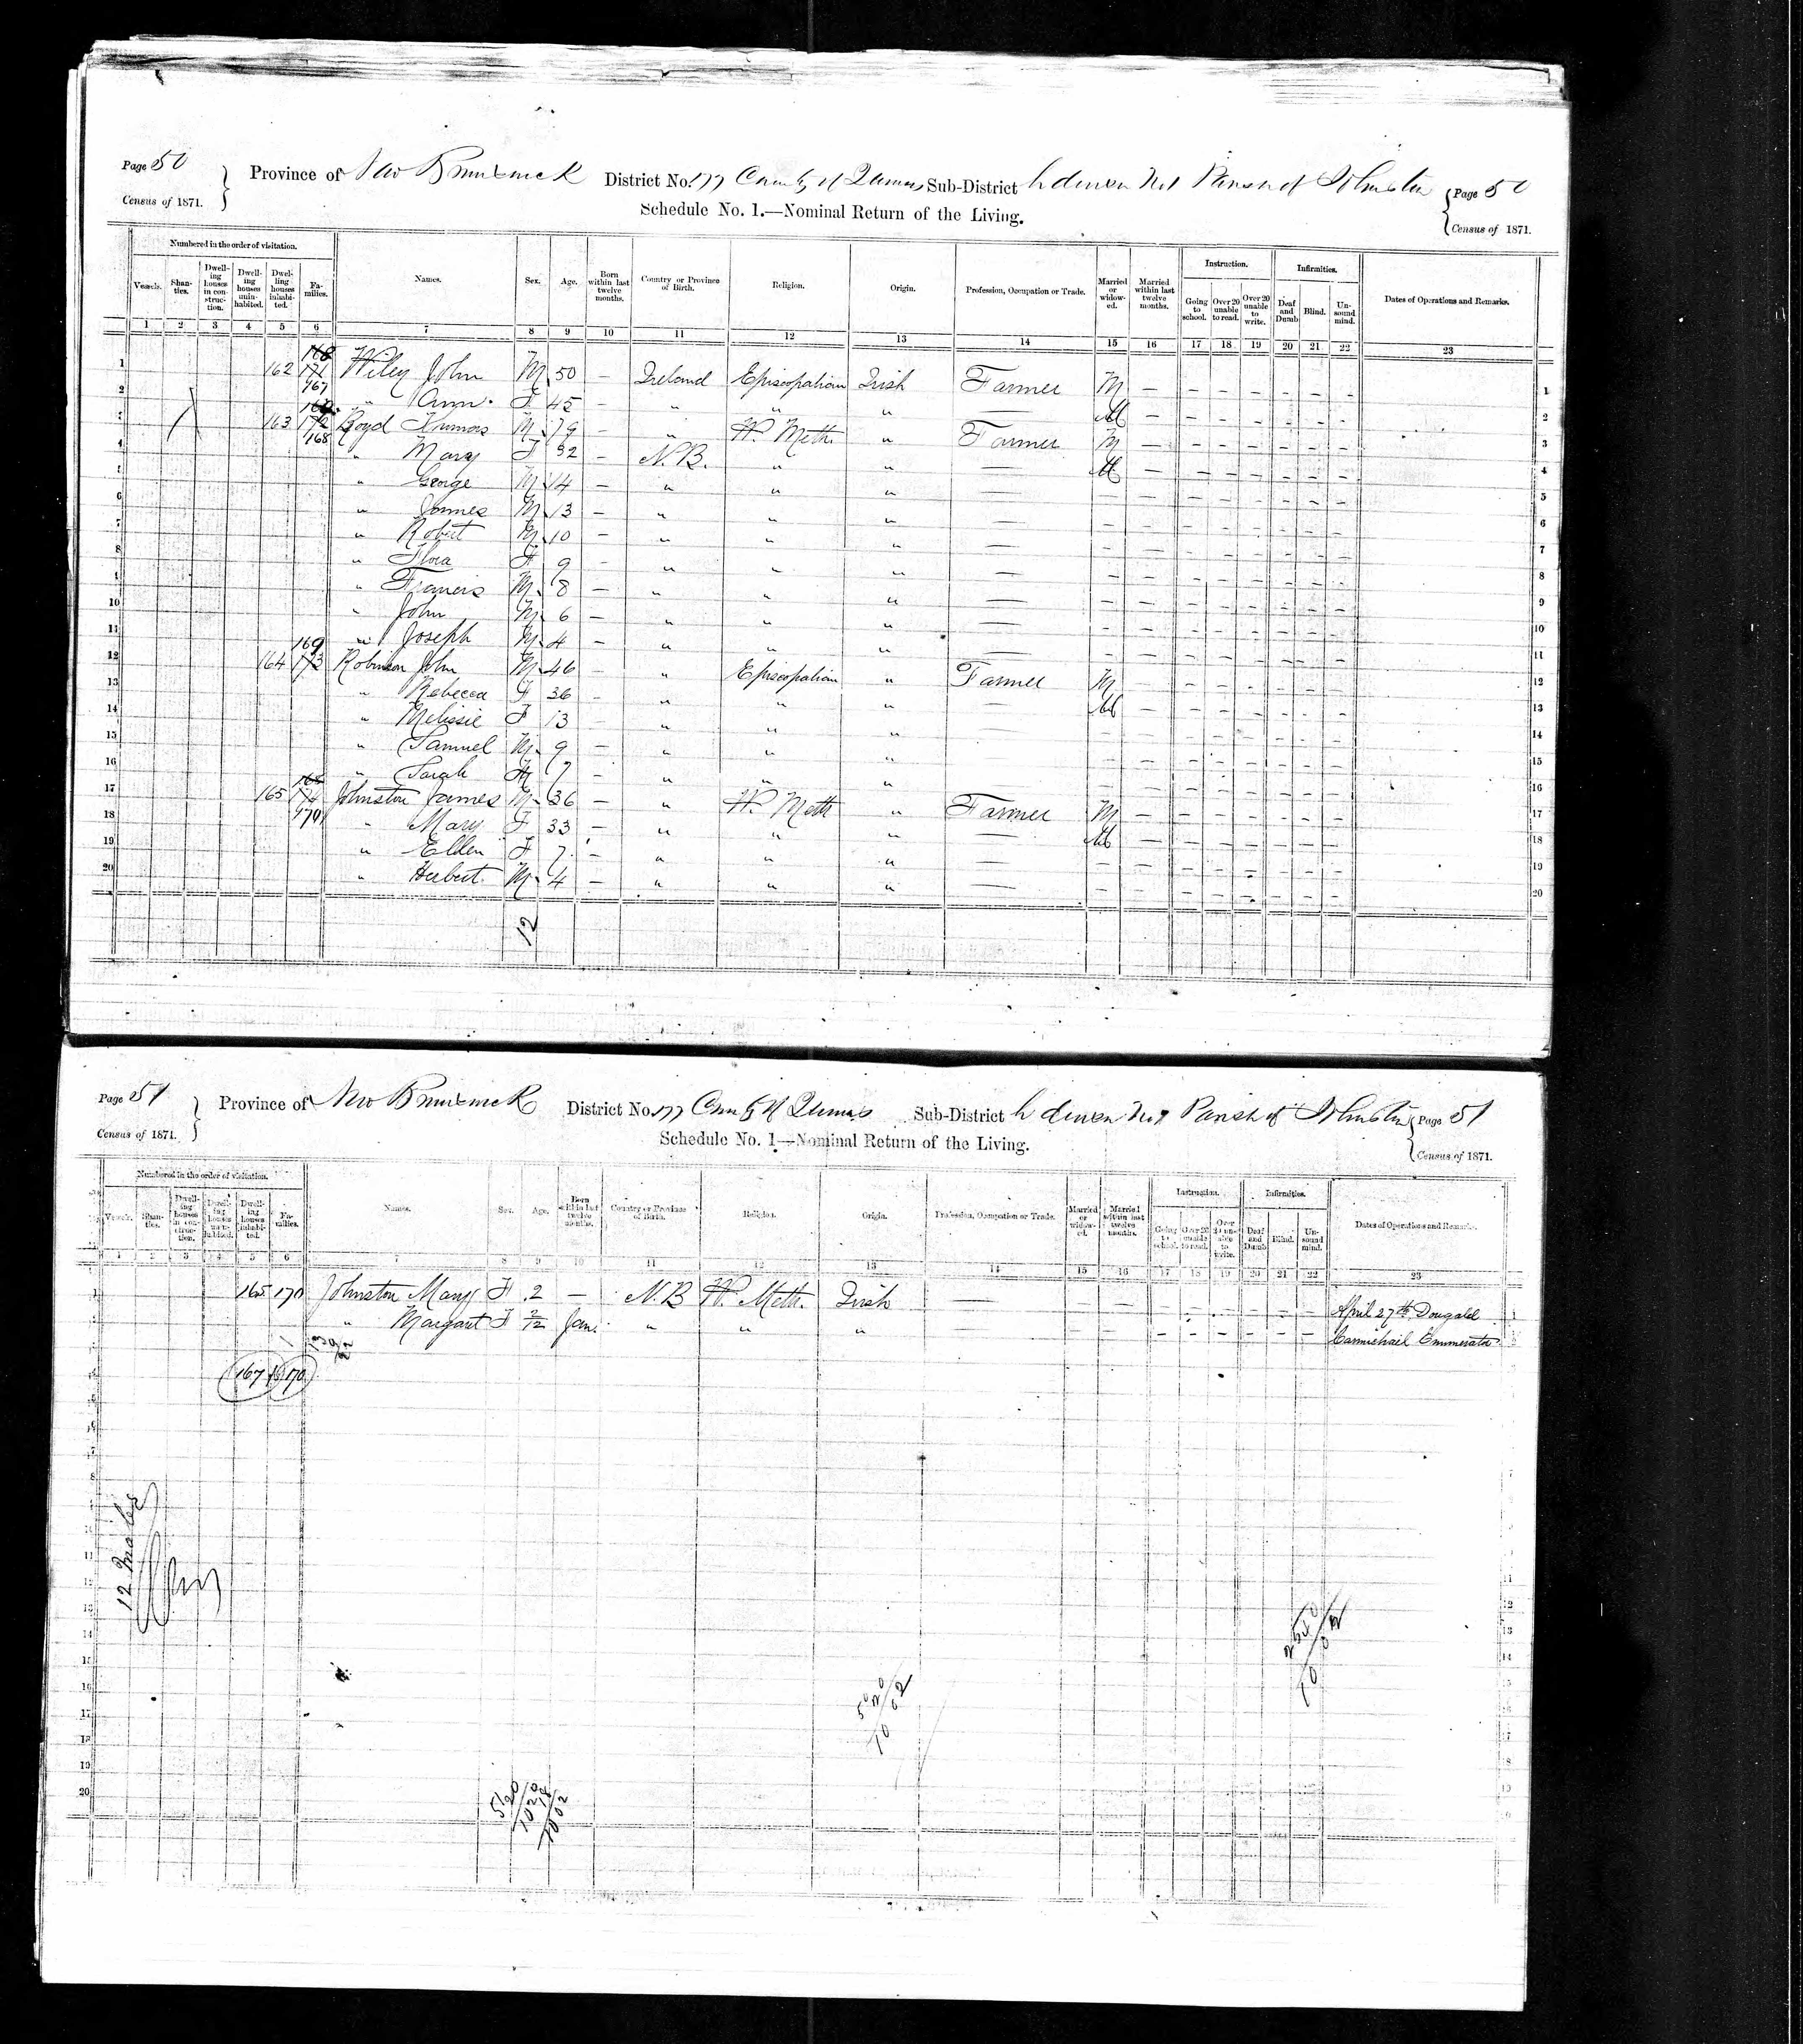 Page 50
Census of 1871.
Province of New Brunswick District No. 177 County of Queens Sub-District Division No 1 Parish of Johnston
Page 50
Census of 1871.
Schedule No. 1.—Nominal Return of the Living.
Numbered in the order of visitation.
Vessels. Shanties. Dwelling houses in construction. Dwelling houses uninhabited. Dwelling houses inhabited. Families. Names. Sex. Age. Born within last twelve months. Country or Province of Birth. Religion. Origin. Profession, Occupation or Trade. Married or widowed. Married within last twelve months. Instruction. Going to school. Over 20 unable to read. Over 20 unable to write. Infirmities. Deaf and Dumb Blind. Unsound mind. Dates of Operations and Remarks.
1 2 3 4 5 6 7 8 9 10 11 12 13 14 15 16 17 18 19 20 21 22 23
1 162 171 167 Wiley John M 50 — Ireland Episcopalian Irish Farmer M — — — — — — — 1
2 " Ann F 45 — " " " M — — — — — — — 2
3 163 172 168 Boyd Thomas M 79 — " W. Meth. " Farmer M — — — — — — — 3
4 " Mary F 32 — N.B. " " — M — — — — — — — 4
5 " George M 14 — " " " — — — — — — — — — 5
6 " James M 13 — " " " — — — — — — — — — 6
7 " Robert M 10 — " " " — — — — — — — — — 7
8 " Flora F 9 — " " " — — — — — — — — — 8
9 " Francis M 8 — " " " — — — — — — — — — 9
10 " John M 6 — " " " — — — — — — — — — 10
11 " Joseph M 4 — " " " — — — — — — — — — 11
12 164 173 169 Robinson John M 46 — " Episcopalian " Farmer M — — — — — — — 12
13 " Rebecca F 36 — " " " — M — — — — — — — 13
14 " Melissie F 13 — " " " — — — — — — — — — 14
15 " Samuel M 9 — " " " — — — — — — — — — 15
16 " Sarah F 7 — " " " — — — — — — — — — 16
17 165 174 170 Johnston James M 36 — " W. Meth " Farmer M — — — — — — — 17
18 " Mary F 33 — " " " — M — — — — — — — 18
19 " Ellen F 7 — " " " — — — — — — — — — 19
20 " Herbert M 4 — " " " — — — — — — — — — 20
12
Page 51
Census of 1871.
Province of New Brunswick District No. 177 County of Queens Sub-District Division No 1 Parish of Johnston
Page 51
Census of 1871.
Schedule No. 1—Nominal Return of the Living.
Numbered in the order of visitation.
Vessels. Shanties. Dwelling houses in construction. Dwelling houses uninhabited. Dwelling houses inhabited. Families. Names. Sex. Age. Born within last twelve months. Country or Province of Birth. Religion. Origin. Profession, Occupation or Trade. Married or widowed. Married within last twelve months. Instruction. Going to school. Over 20 unable to read. Over 20 unable to write. Infirmities. Deaf and Dumb Blind. Unsound mind. Dates of Operations and Remarks.
1 2 3 4 5 6 7 8 9 10 11 12 13 14 15 16 17 18 19 20 21 22 23
165 170 Johnston Mary F 2 — N.B W. Meth. Irish — — — — — — — — — April 27th Dougald
" Margaret F 2/12 Jan. " " " — — — — — — — — — Carmichail Enumerator
167 170
12 Males